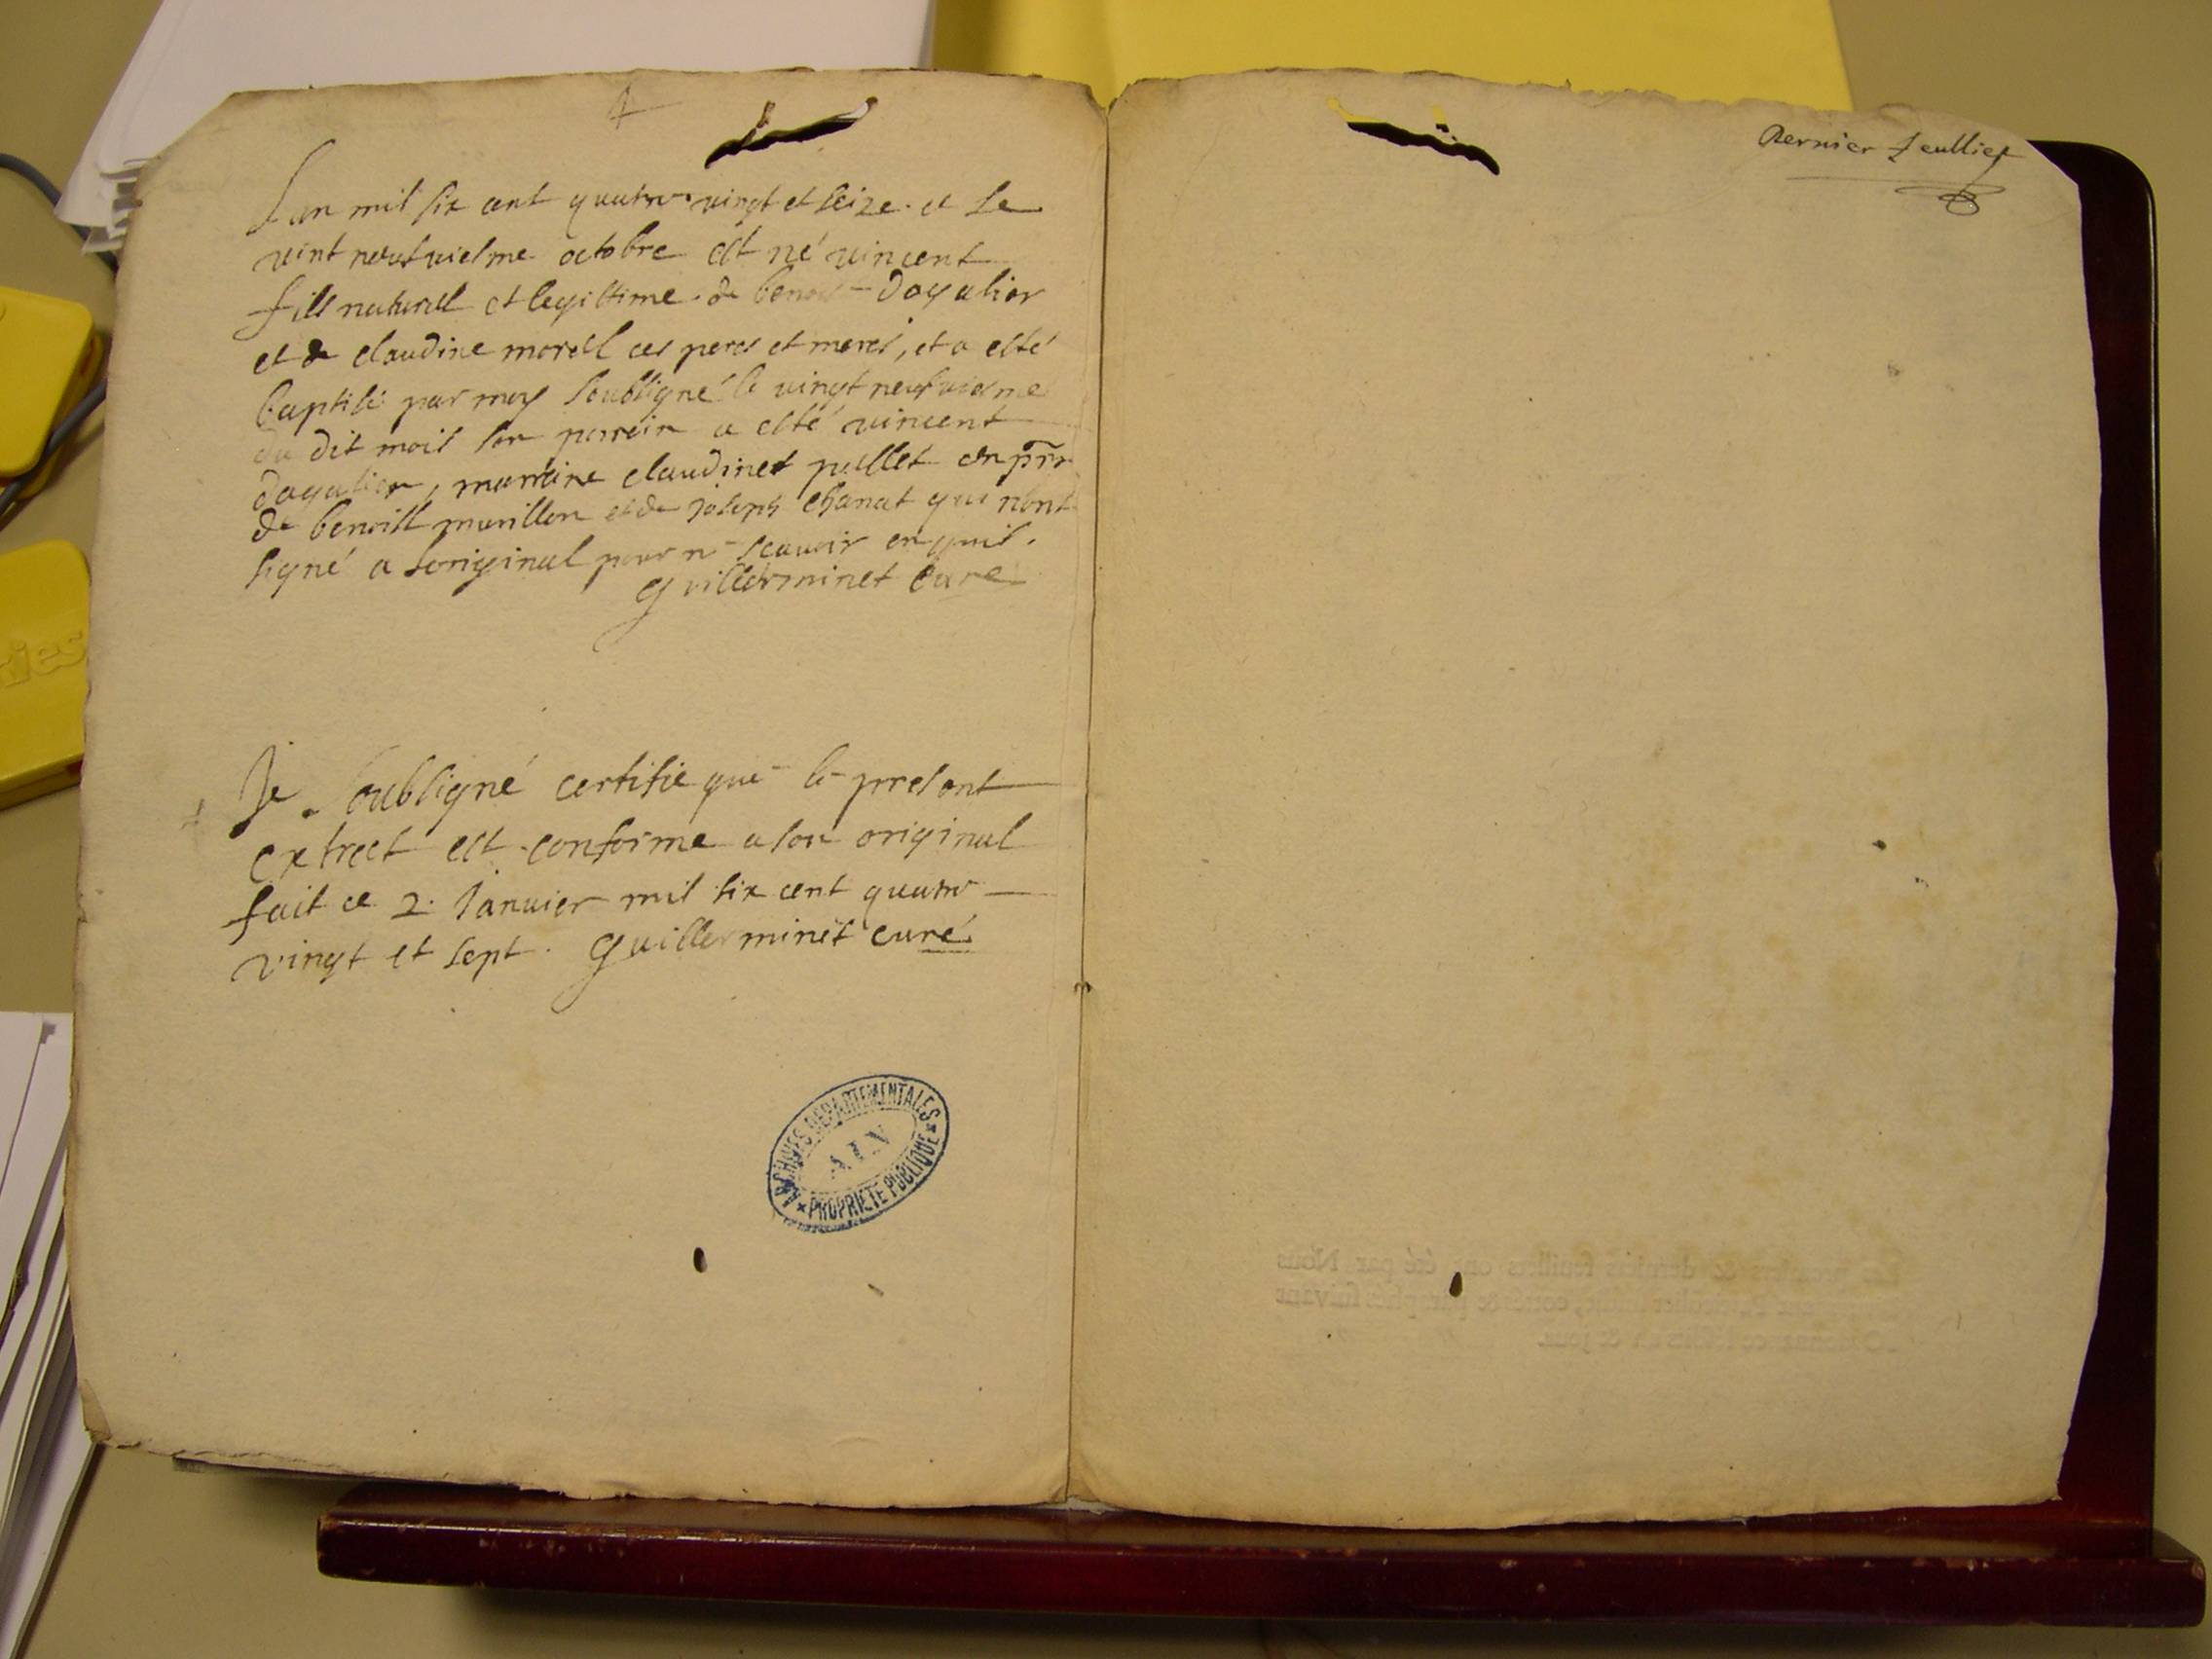 Lan mil six cent quatre vingt et seize et le
vint neufviesme octobre est né vincent
fils naturel et legittime de benoist dagalier
et de claudine morel ces peres et meres, et a esté
baptisé par moy soubsigné le vingt neufviesme
du dit mois son parrein a esté vincent
dagalier, marraine claudine pullet en pñr
de benoist murillon et de Joseph chanat qui nont
signé a loriginal pour ne scavoir enquis.
guillerminet curé
Je soubsigné certifie que le present
extrect est conforme a son original
fait ce 2. Janvier mil six cent quatre
vingt et sept. guillerminet curé
ARCHIVES DEPARTEMENTALES
AIN
PROPRIETE PUBLIQUE
Dernier feulliet